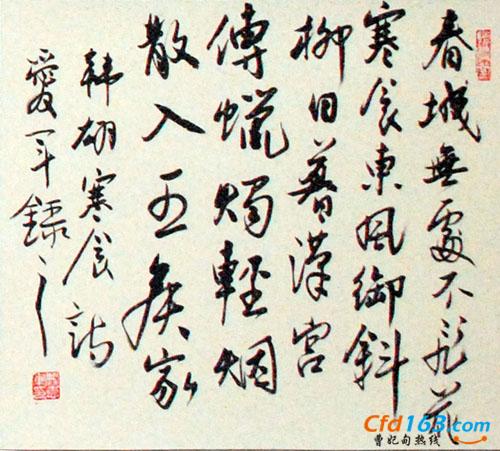 春城無處不飛花
寒食東風御斜
柳日暮漢宮
傳蠟燭輕烟
散入五侯家
韓翃寒食詩
愛军録之
Cfd163.com
曹妃甸热线